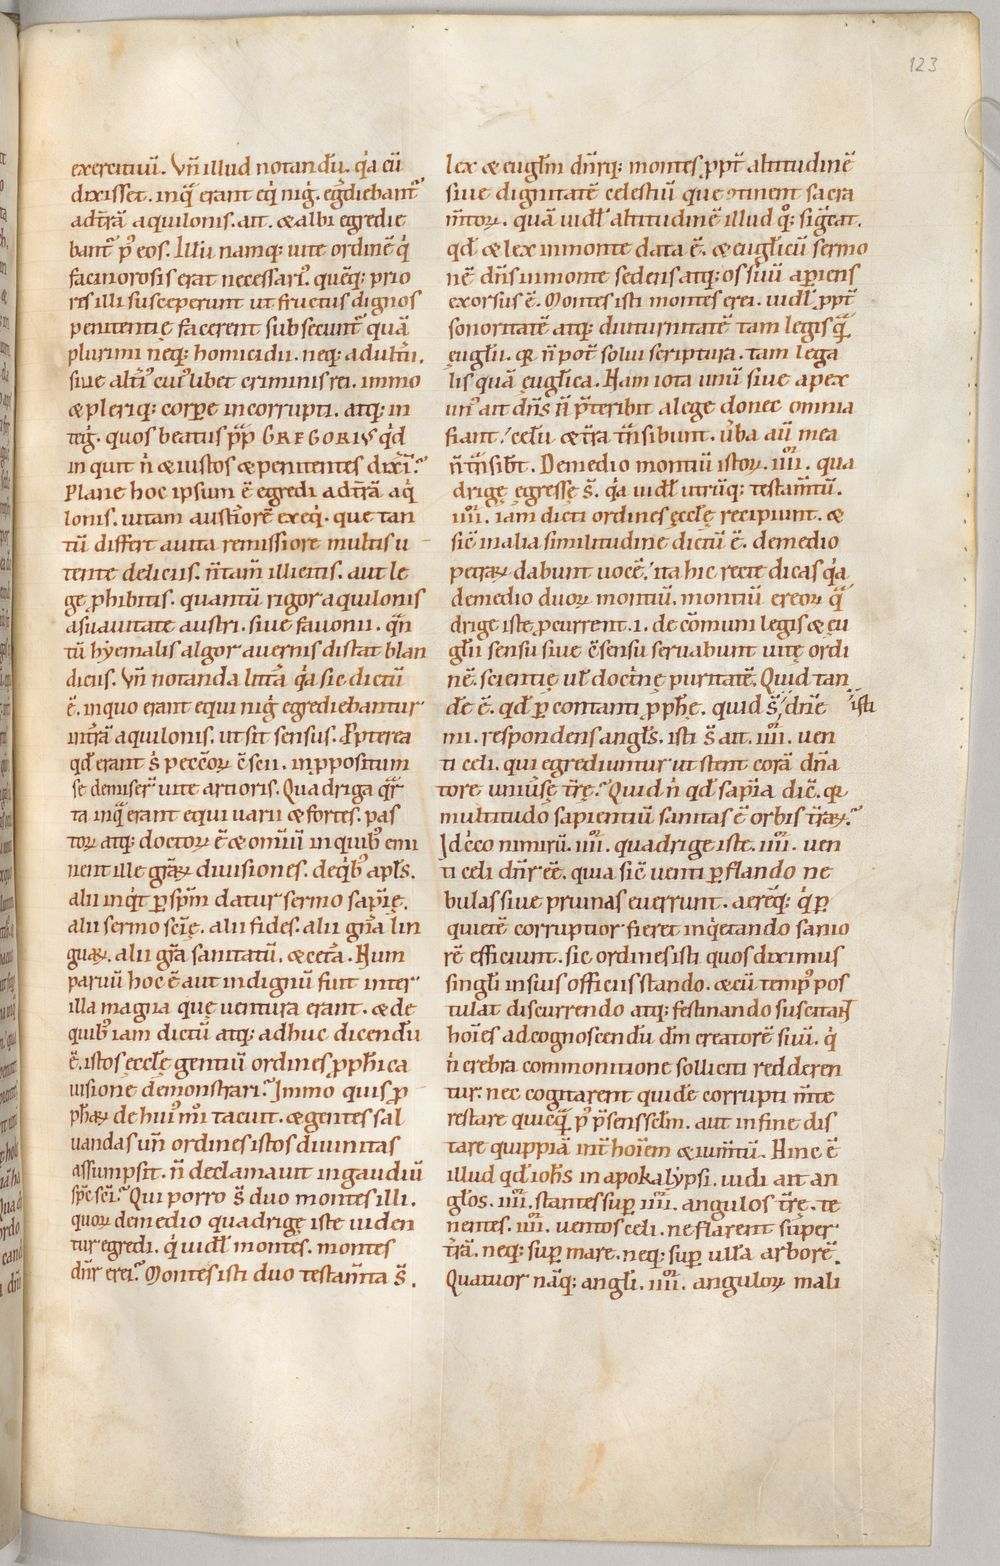 123
exercituū. Vn̄ illud notandū. q̇a cū
dixisset. inq̄ erant eq̇ niġ. eḡdiebant᷑
ad tr̄ā aquilonis. ait. & albi egredie
bant᷑ p̾ eos. Illū namq; uitę ordinē q̇
facinorosis erat necessari᷒. quēq; prio
res illi susceperunt ut fructus dignos
penitentię facerent subsecunt᷑ quā
plurimi neq; homicidii. neq; adulterii.
siue alti᷒ cui᷒libet criminis rei. immo
& pleriq; corpore incorrupti. atq; in
teġ. quos beatus pp̄ GREGORIUS q̇d
inquit n̄ & iustos & penitentes dixerī?
Plane hoc ipsum ē egredi ad tr̄ā aq̇
lonis. uitam austiorē exeq̇. quę tan
tū differt a uita remissiore multis u
tente deliciis. n̄ tam̄ illicitis. aut le
ge ꝓhibitis. quantū rigor aquilonis
a suauitate austri. siue fauonii. q̄n
tū hyemalis algor a uernis distat blan
diciis. Vn̄ notanda litt̄a q̇a sic dictū
ē. in quo erant equi niġ egrediebantur
in tr̄ā aquilonis. ut sit sensus. Ppterea
qd̄ erant s̄ peccōꝝ c̄scii. in ꝓpositum
se demiser᷑ uitę artioris. Quadriga q̄r
ta inq̄ erant equi uarii & fortes. pas
toꝝ atq; doctoꝝ ē & om̄iū in quib᷒ emi
nent illę gr̄aꝝ diuisiones. de q̇b᷒ apl̄s.
alii inq̇t ꝑ sp̄m datur sermo sapīę.
alii sermo sciē. alii fides. alii gr̄a lin
guaꝝ. alii gr̄a sanitatū. & cet̄a. Num
paruū hoc ē aut indignū fuit inter
illa magna quę uentura erant. & de
quib᷒ iam dictū atq; adhuc dicendū
ē. istos ęccl̄ę gentiū ordines ꝓph̄ica
uisione demonstrari? Immo quis ꝓ
phaꝝ de hui᷒mī tacuit. & gentes sal
uandas un̄ ordines istos diuinitas
assumpsit. n̄ declamauit in gaudiū
spe sc̄i? Qui porro s̄ duo montes illi.
quoꝝ de medio quadrigę istę uiden
tur egredi. q̇ uidl̄ montes. montes
dn̄r erei? Montes isti duo testam̄ta s̄.
lex & eugl̄m dn̄rq; montes ꝓpt᷑ altitudinē
siue dignitatē celestiū quę ꝯtinent sacra
m̄toꝝ. quā uidl̄ altitudinē illud q̊q; sig̣cat.
qd̄ & lex in monte data ē. & eugl̄icū sermo
nē dn̄s in monte sedens atq; os suū aperiens
exorsus ē. Montes isti montes erei. uidl̄ ꝓpt᷑
sonoritatē atq; diuturnitatē tam legis q̄
ęugl̄ii. qꝛ n̄ pot̄ solui scriptura. tam lega
lis quā ęugl̄ica. Nam iota unū siue apex
un᷒ ait dn̄s n̄ p̄teribit a lege donec omnia
fiant.' celū & tr̄a tn̄sibunt. ūba aū mea
n̄ tn̄sibt̄. De medio montiū istoꝝ. iiii. qua
drigę ęgressę s̄. q̇a uidl̄ utrūq; testam̄tū.
iiii. iam dicti ordines ęccl̄ę recipiunt. &
sic̄ in alia similitudine dictū ē. de medio
petraꝝ dabunt uocē.' ita hic recte dicas q̇a
de medio duoꝝ montiū. montiū ereoꝝ q̄
drigę istę ꝓcurrent .i. de cōmuni legis & eu
gl̄ii sensu siue c̄sensu seruabunt uitę ordi
nē. scientię ul̄ doct̄nę puritatē. Quid tan
dē ē. qd̄ ꝑcontanti ꝓph̄ę. quid s̄ / dn̄e isti
mi. respondens angl̄s. isti s̄ ait. iiii. uen
ti celi. qui egrediuntur ut stent corā dn̄a
tore uniūsę tr̄ę? Quid n̄ qd̄ sapīa dic̄. qꝛ
multitudo sapientiū sanitas ē orbis tr̄aꝝ?
Idcc̄o nimirū. iiii. quadrigę istę. iiii. uen
ti celi dn̄r eē. quia sic̄ uenti ꝑflando ne
bulas siue pruinas euerrunt. aerēq; q̇ ꝑ
quietē corruptior fieret inq̇etando sanio
rē efficiunt. sic ordines isti quos diximus
singl̄i in suis officiis stando. & cū temp᷒ pos
tulat discurrendo atq; festinando suscitar̄
hoīes ad cognoscendū dm̄ creatorē suū. q̇
n̄ crebra commonitione solliciti redderen
tur. nec cogitarent quidē corrupti m̄te
restare quicq̄ p̾ p̄sens scl̄m. aut in fine dis
tare quippiā int᷑ hoīem & ium̄tū. Hinc ē
illud qd̄ ioh̄s in apokalypsi. uidi ait an
gl̄os. iiii. stantes sup̄ iiii. angulos tr̄ę. te
nentes. iiii. uentos celi. ne flarent super
tr̄ā. neq; sup̄ mare. neq; sup̄ ullā arborē.
Quatuor nāq; angl̄i. iiii. anguloꝝ mali